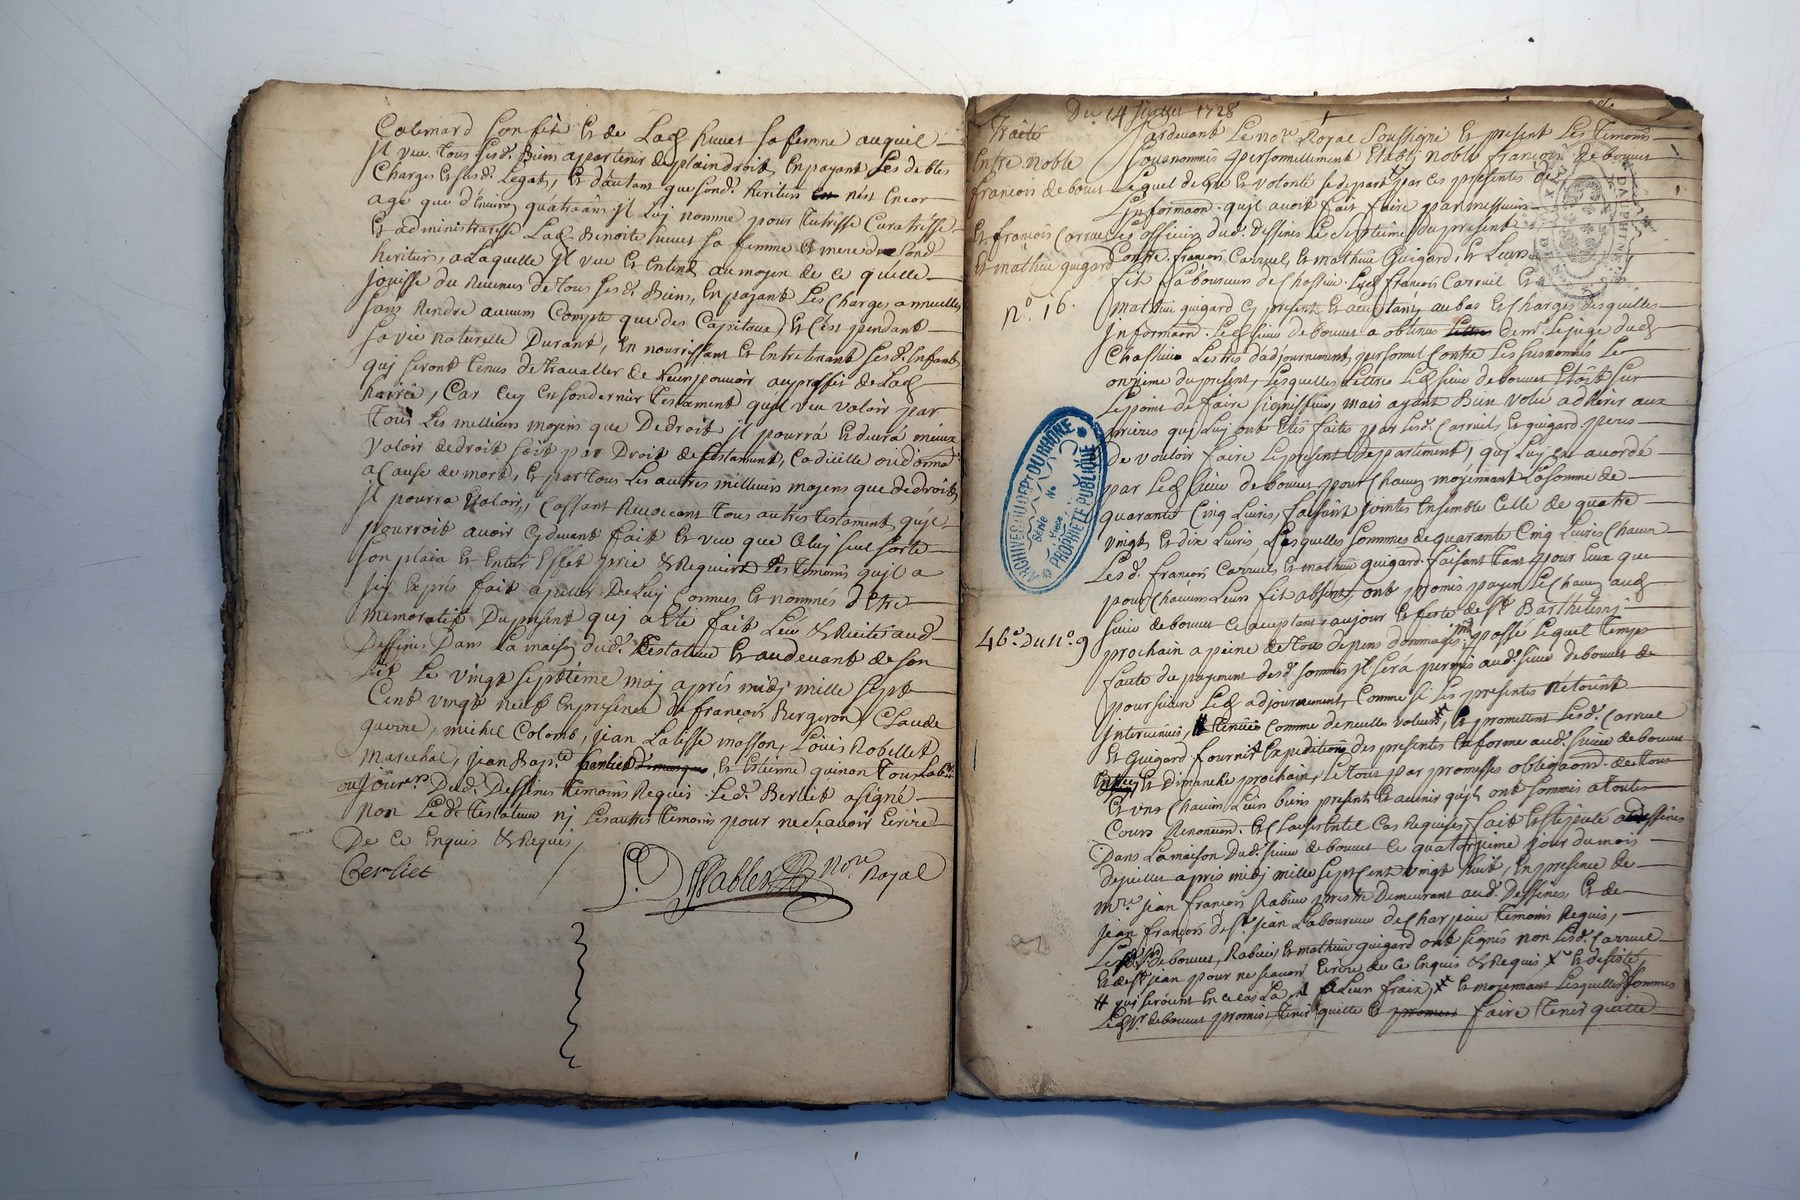 Colemard son fils Et de Lad. huuet sa femme auquel
Jl veu tous sesd. Biens appartenir de plain droit, En payant ses debtes
Charges Et susd. Legats, Et d'autant que sond. heritier n'est Encor
agé que d'Enuiron quatre ans Jl Luy nomme pour tutrisse Curatrisse
Et administraresse Lad. Benoite huuet sa femme Et mere de sond.
heritier, a Laquelle Jl veu Et Entend au moyen de ce quelle
jouisse du Reuenus de tous sesd. Biens, En payant Les Charges annuelles
sans Rendre aucum Compte que des Capitaux, Et C'est pendant
sa vie naturelle Durant, En nourrissant Et Entretenant sesd. Enfants
quj seront tenus de trauailler de Leur pouvoir au proffit de Lad.
, Car Cecy Est son dernier testament qu'jl veu valoir par
tous Les meilleurs moyens que De droit jl pourrá Et deurá mieux
valoir de droit soit par Droit de testament, Codicille ou donnaõn
a Cause de mort, Et par tous Les autres meilleurs moyens que de droit
jl pourra valoir, Cassant Reuocant tous autres testament qu'jl
pourroit auoir Cy deuant fait Et veu que Celuy seul sorte
son plain Et Entier Effet prie & Requiert Les temoins qu'jl a
Jcy Exprés fait apeller De Luy Connus Et nommés d'Etre
memoratif Du present quj a Eté fait Leu & Recité aud.
Dessines Dans La maison dud. testateur Et au deuant de son
Lit Le vingt septiéme maj aprés midj mille sept
Cent vingt neuf En presence de françois Bergeron, Claude
, michel Colomb, jean masson, Loüis Robellet
Marechal, jean Bap.te Et Estienne guinon tous Lab.rs
ou Joür.rs Dud. Dessines temoins Requis Led. Berliet a signé
non Led. testateur nj Les autres temoins pour ne sçauoir Ecrire
De Ce Enquis & Requis
Berliet
No.re Royal
Du 14 Juillet 1728
Traité
Entre noble
françois de bouuet
Et françois Carruel
Et mathieu guigard
n.o 16.
46.e Du N.o 9
Pardeuant Le no.re Royal Soussigné Et present Les temoins
sousnommés personnellement Etablj noble françois de bouuet
Lequel de gré Et volonté se depart par ces presentes de
L'informaõn qu'jl auoit fait faire par messieurs
Les officiers dud. Dessines Les septieme Du present
Contre françois Carruel, Et mathieu Guigard, Et Leurs
fils Laboureurs de Chassieu. Led. françois Carruel Et
mathieu guigard Cy present Et acceptant, au bas Et Charges desquelles
Jnformaõn. Led. sieur de bouuet a obtenus de m. Le juge dud.
Chassieu Lettres d'adjournement personnel Contre Les susnommés Le
onzieme du present, Lesquelles Lettres Led. sieur de bouuet Etôit sur
Le point de faire signiffier, mais ayant Bien volu adherer aux
prieres quj Luy ont Etés faites par Lesd. Carruel Et guigard peres
de vouloir faire Le present Departiment, quj Luy Est accordé
par Led. sieur de bouuet pour Chacun moyennant La somme de
quarante Cinq Liures, faisant jointes Ensemble Celle de quatre
vingt Et dix Liures Lesquelles sommes de quarante Cinq Liures Chacun
Lesd. françois Carruel Et mathieu guigard faisant tant pour Eux que
pour Chacun Leurs fils absents ont promis payer Et Chacun aud.
sieur de bouuet Ce acceptant aujour Et feste de S.t Barthelemj
prochain a peine de tous depens dommages passé Lequel temps
faute du payement desd. sommes jl será permis aud. sieur de bouuet de
poursuiure Led. adjournement, Comme si Les presentes n'etoint
Jnteruenües, # tenües Comme de nulle valeur, Et promettent Lesd. Carruel
Et Guigard fournir Expeditions des presentes En forme aud. sieur de bouuet
Et Dimanche prochain, Le tout par promesses obligaõns de tous
Et vns Chacun Leurs biens presents Et auenir qu'jls ont sommis a toutes
Cours Renonciaõn. Et Clauses Entel Cas Requises, fait Et stipulé a Dessines
Dans La maison Dud. sieur de bouuet Ce quatorzieme jour du mois
de juillet aprés midj mille sept Cent vingt huit, En presence de
M.re jean françois Rabieu Demeurant aud. Dessines, Et de
jean françois de S.t jean Laboureur de temoins Requis,
Led. S.r De bouuet, Rabieu, Et mathieu guigard ont signés non Lesd. Carruel
Et de S.t jean pour ne scauoir Ecrire de Ce Enquis & Requis
# quj seroint En Ce Cas La a Leur fraix, Et moyennant Lesquelles sommes
Led. S.r de bouuet promis tenir quitte Et promis faire tenir quitte
ARCHIVES DU DEP.T DU RHÔNE
Série No
Pièce
PROPRIÉTÉ PUBLIQUE